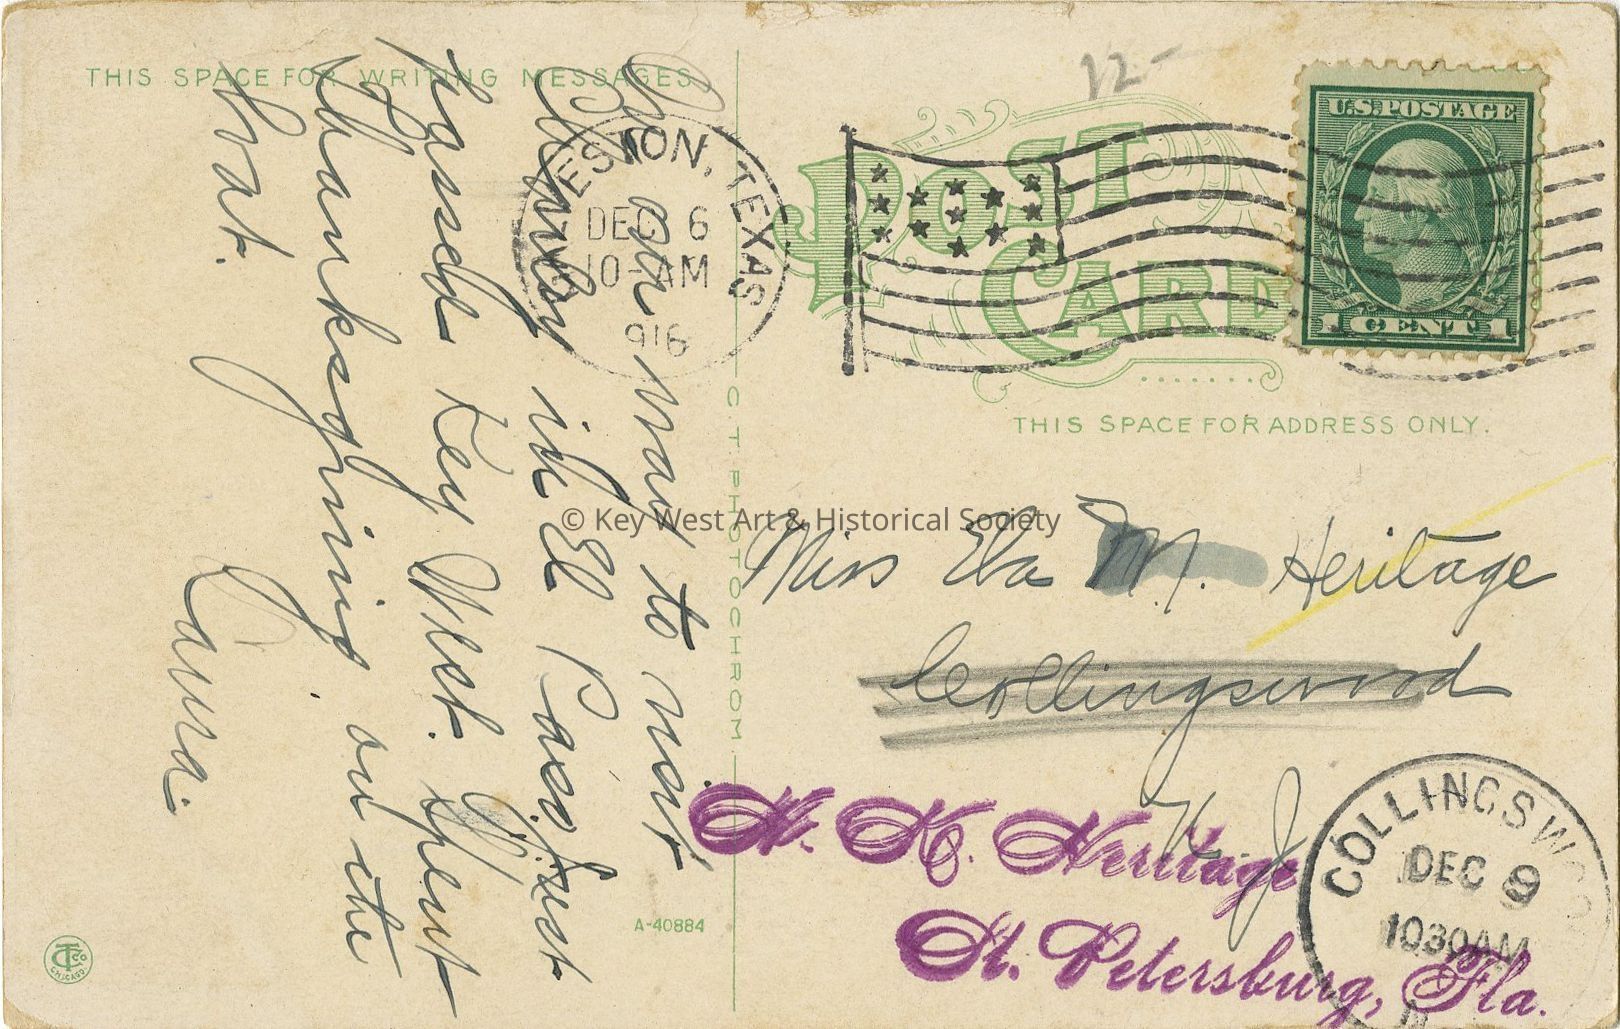 THIS SPACE FOR WRITING MESSAGES
On our way to visit
Stanley in El Paso. Just
passed Key West. Spent
Thanksgiving on the
boat.
Laura.
GALVESTON, TEXAS
DEC 6
10-AM
1916
12-
POST
CARD
U.S. POSTAGE
1 CENT 1
THIS SPACE FOR ADDRESS ONLY.
© Key West Art & Historical Society
C. T. PHOTOCHROM
Miss Eva M. Heritage
Collingswood
N. J.
H. K. Heritage
St. Petersburg, Fla.
COLLINGSWOOD
DEC 9
1030AM
A-40884
CTCO
CHICAGO.